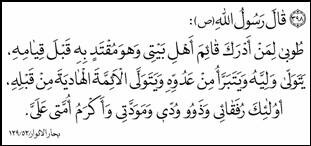 ﴿٣٩٨﴾ قَالَ رَسُولُ اللهِ (ص):
طُوبىٰ لِمَنْ أَدْرَكَ قَائِمَ أَهْلِ بَيْتِي وَهُوَ مُقْتَدٍ بِهِ قَبْلَ قِيَامِهِ،
يَتَوَلّىٰ وَلِيَّهُ وَيَتَبَرَّأُ مِنْ عَدُوِّهِ وَيَتَوَلَّى الْأَئِمَّةَ الْهَادِيَةَ مِنْ قَبْلِهِ،
أُولٰئِكَ رُفَقَائِي وَذَوُو وُدِّي وَمَوَدَّتِي وَأَكْرَمُ أُمَّتِي عَلَيَّ.
بحار الانوار: ١٢٩/٥٢